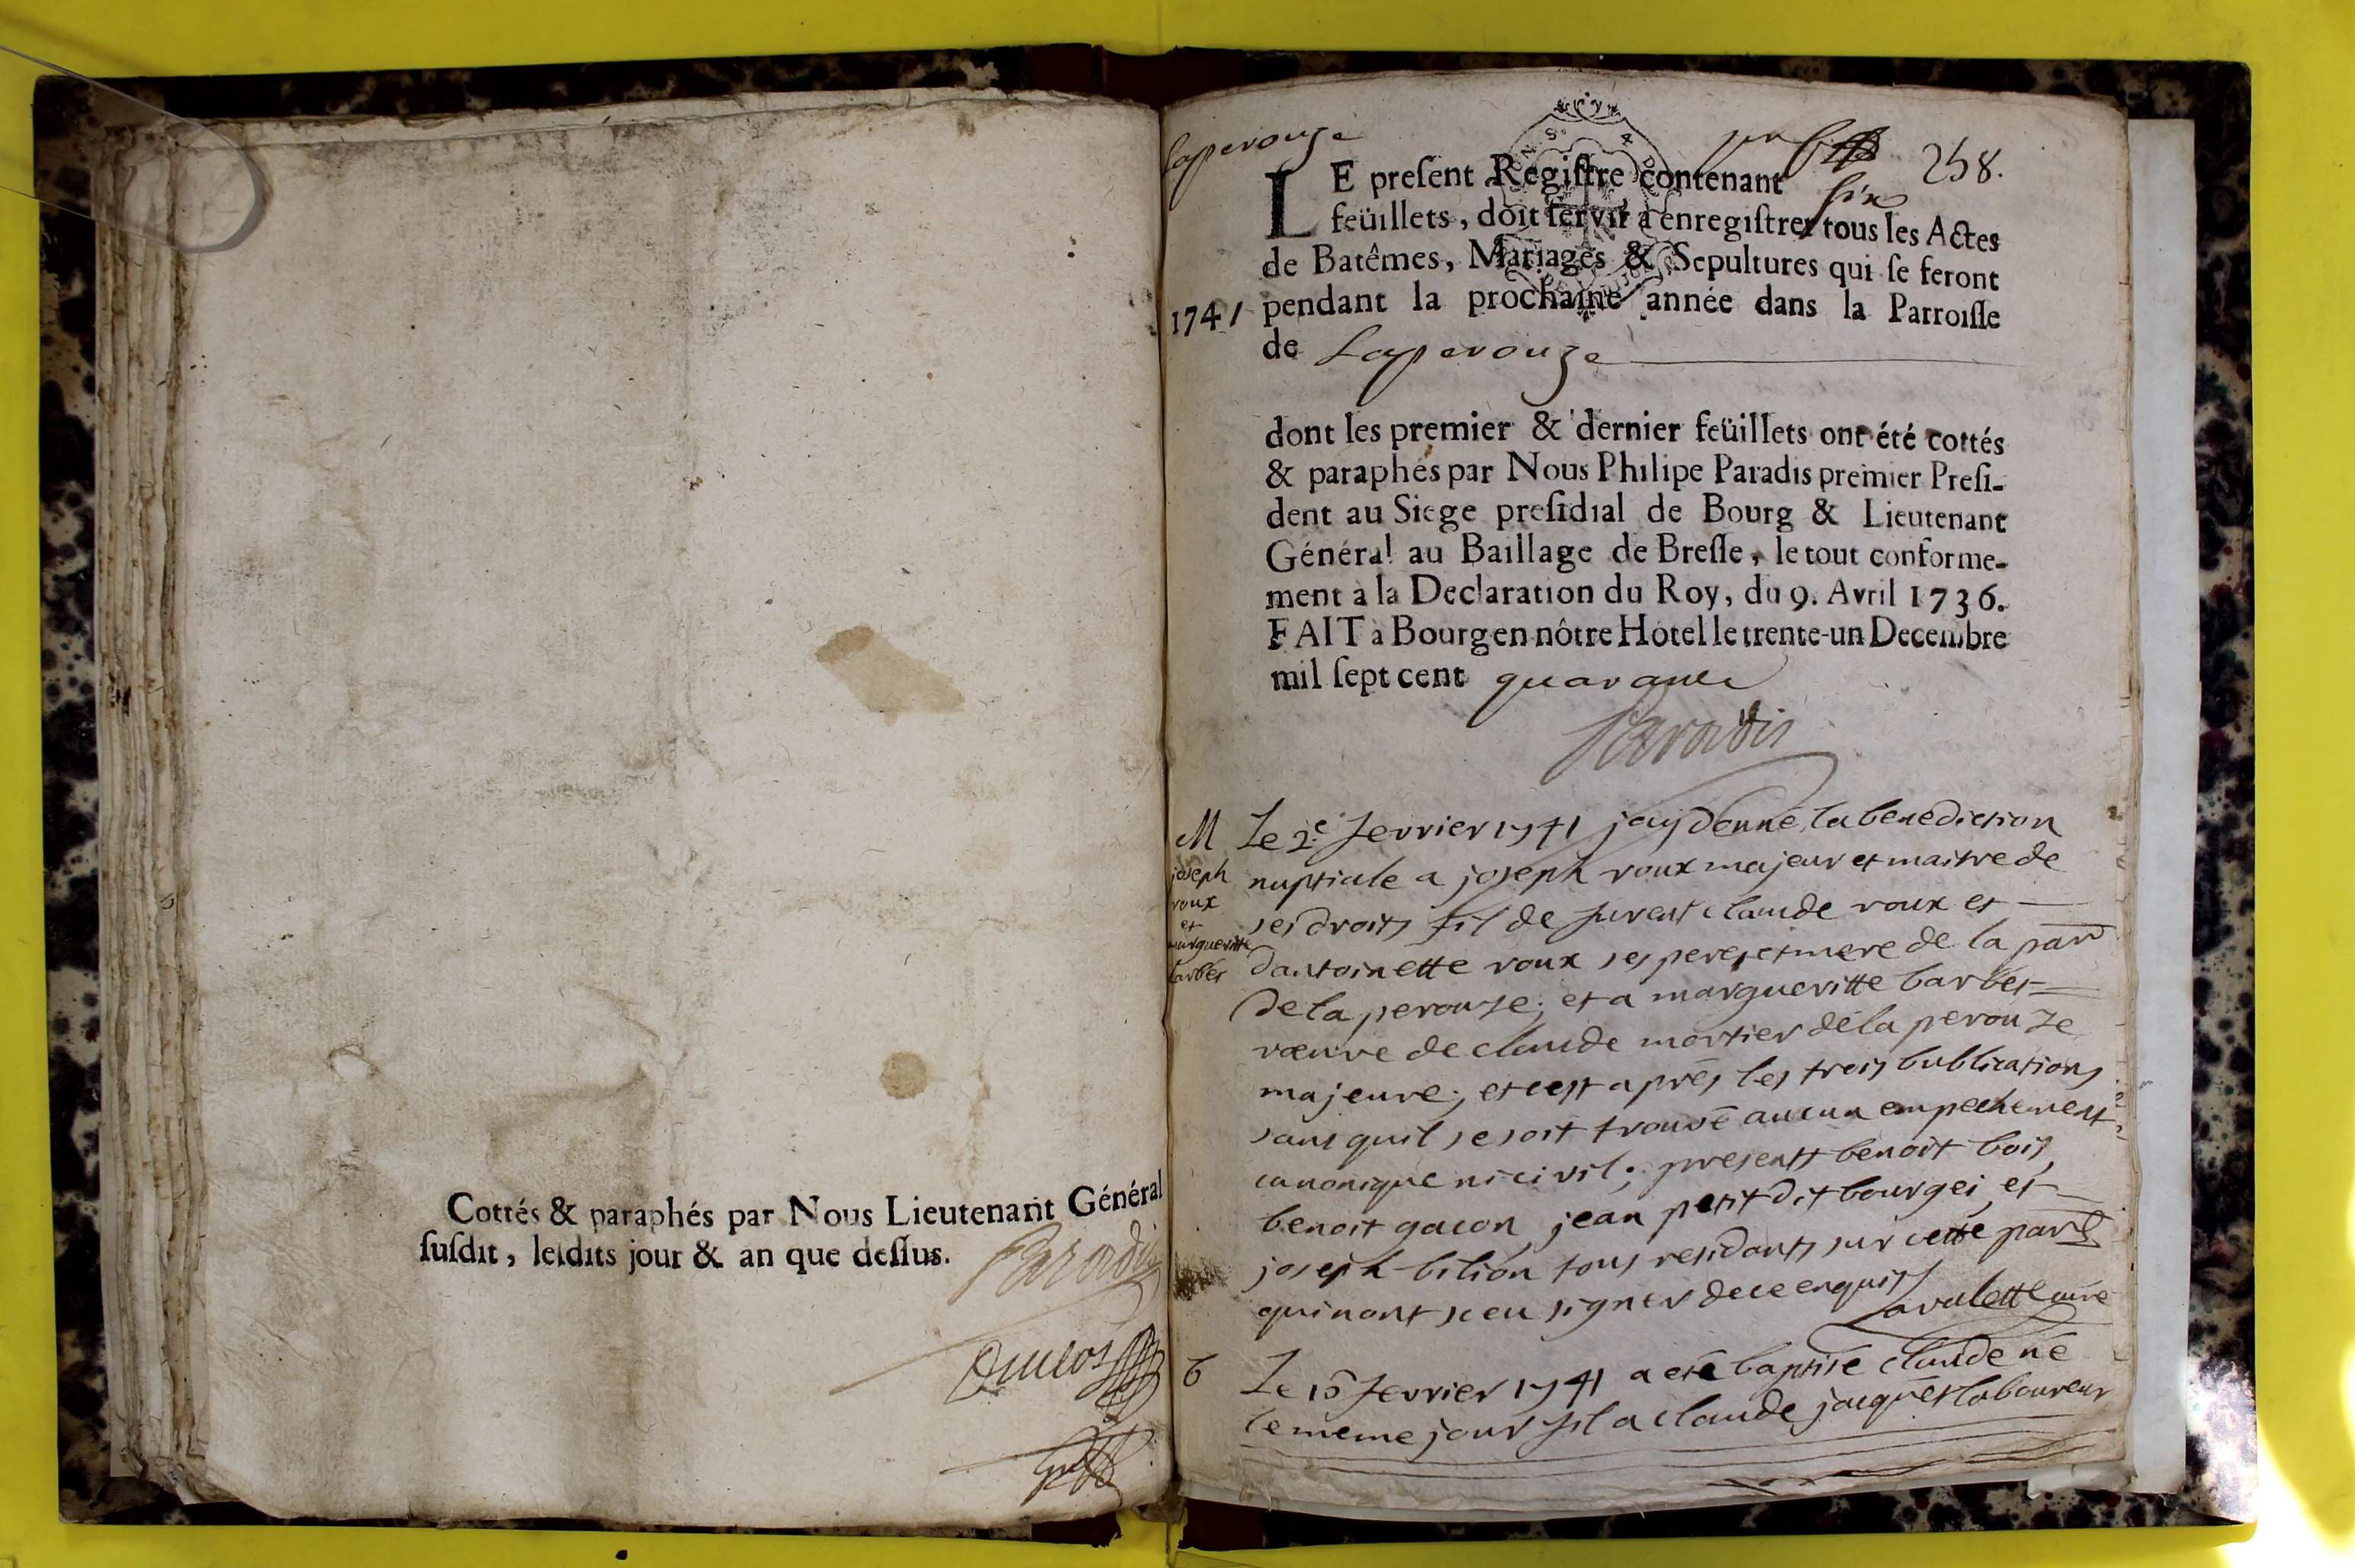 Cottés & paraphés par Nous Lieutenant Général
susdit, lesdits jour & an que dessus. Paradis
Duclos
Laperouze
258.
LE present Registre contenant six
feüillets, doit servir à enregistrer tous les Actes
de Batêmes, Mariages & Sepultures qui se feront
1741 pendant la prochaine année dans la Parroisse
de Laperouze
dont les premier & dernier feüillets ont été cottés
& paraphés par Nous Philipe Paradis premier Presi-
dent au Siege presidial de Bourg & Lieutenant
Général au Baillage de Bresse, le tout conforme-
ment à la Declaration du Roy, du 9. Avril 1736.
FAIT à Bourg en nôtre Hotel le trente-un Decembre
mil sept cent quarante
Paradis
M
joseph
roux
et
margueritte
barbet
Le 2e fevrier 1741 jay donné la benediction
nuptiale a joseph roux majeur et maitre de
ses droits fil de furent claude roux et
dantoinette roux ses pere et mere de la parr
de la perouze; et a margueritte barbet
vœuve de claude mortier de la perouze
majeure; et cest après les trois bublications
sans quil se soit trouvé aucun empechement
canonique ni civil; presents benoit bois,
benoit gacon, jean petit dit bourgei, et
joseph bilion tous residants sur cette parr
qui nont sceu signer de ce enquis
Lavalette curé
B
Le fevrier 1741 a eté baptisé claude né
le meme jour fil a claude jacquet laboureur